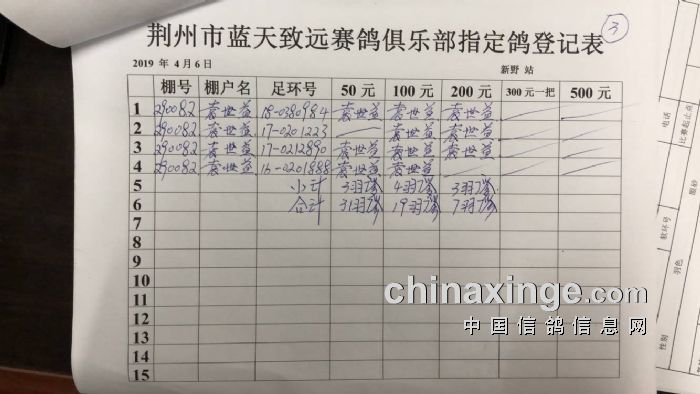 荆州市蓝天致远赛鸽俱乐部指定鸽登记表 3
2019 年 4 月 6 日 新野 站
棚号 棚户名 足环号 50 元 100 元 200 元 300元一把 500 元
1 290082 袁世益 18-0280984 袁世益 袁世益 袁世益
2 290082 袁世益 17-0201223 — 袁世益 袁世益
3 290082 袁世益 17-0212890 袁世益 袁世益 袁世益
4 290082 袁世益 16-0201888 袁世益 袁世益
5 小计 3羽 4羽 3羽
6 合计 31羽 19羽 7羽
7
8
9
10
11
12
13
14
15
电话
比赛起止点
眼砂
软环号
羽色
性别
chinaxinge.com
中国信鸽信息网